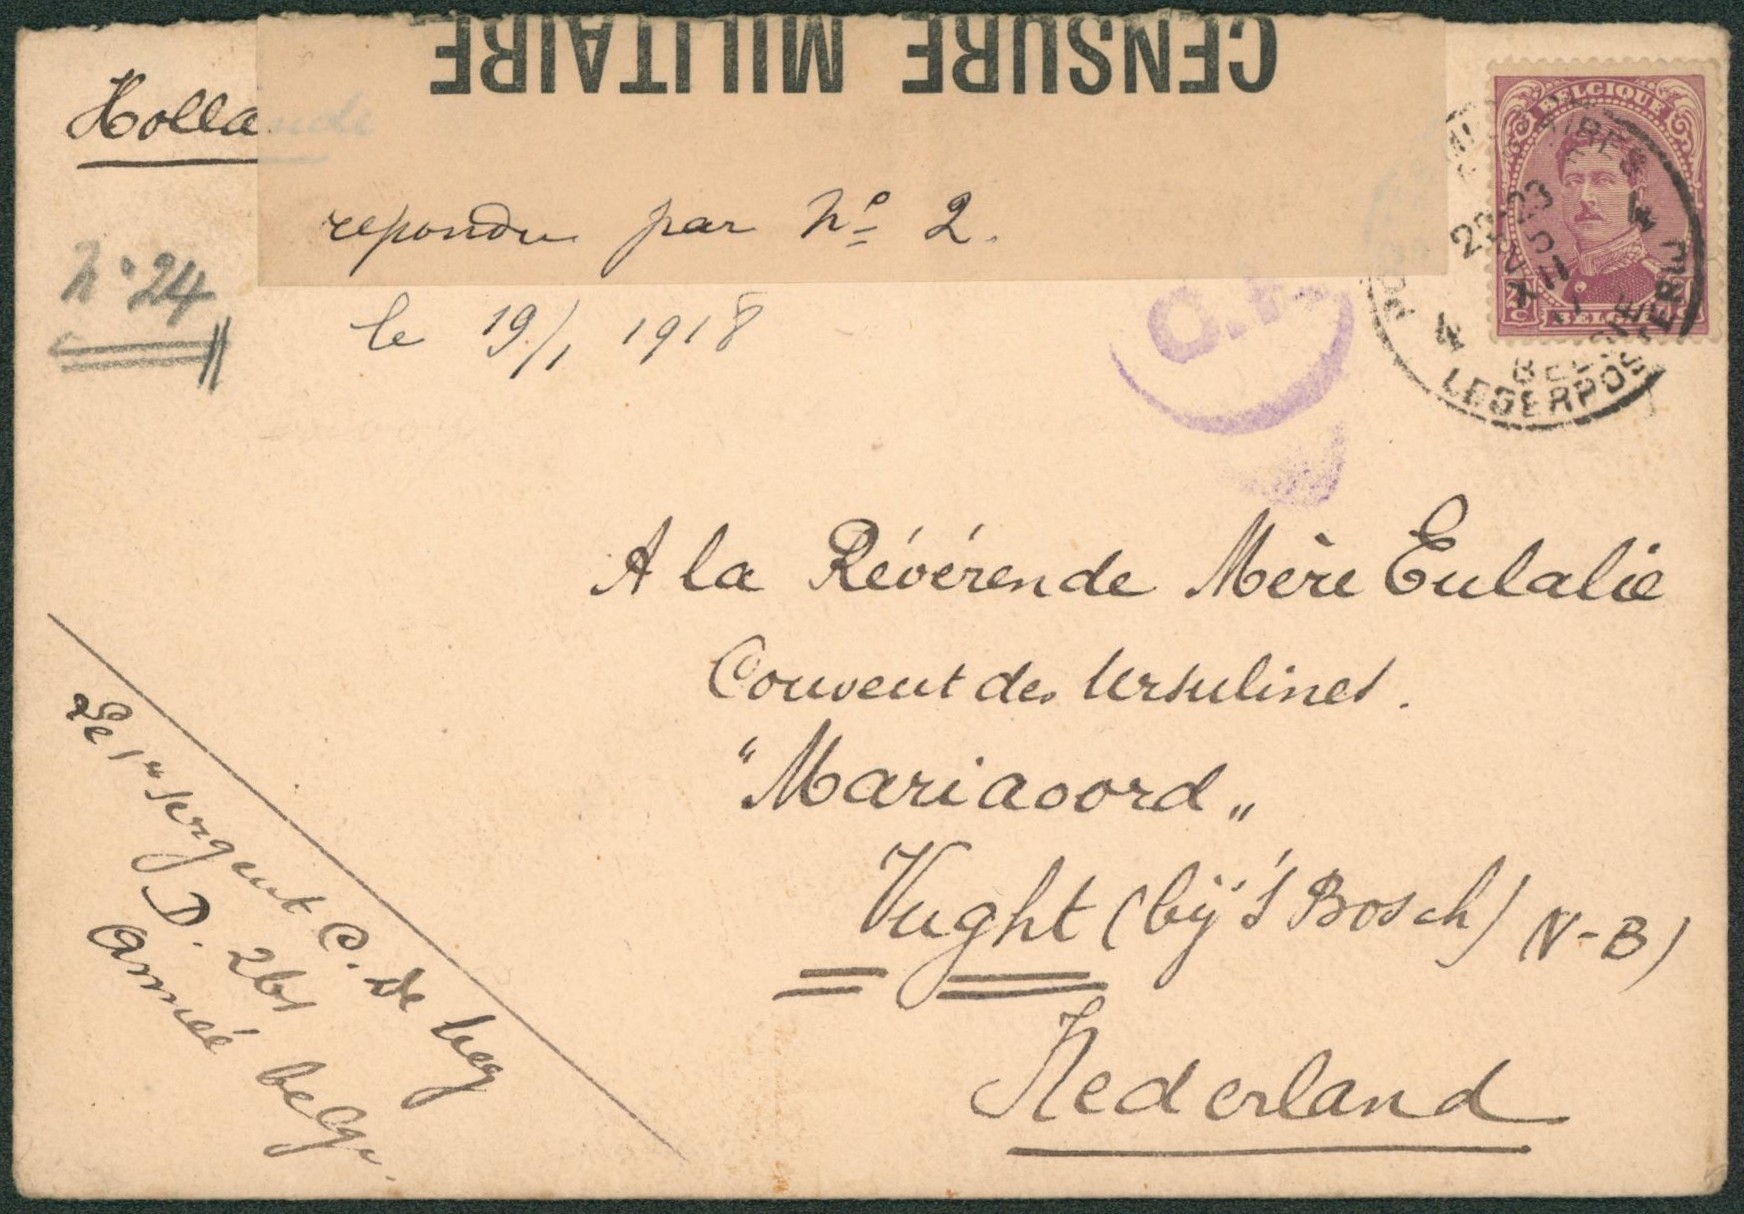 CENSURE MILITAIRE
Hollande
repondu par No 2.
le 19/1 1918
No 24
BELGIQUE
LEGERPOSTERIJ
A la Révérende Mère Eulalie
Couvent des Ursulines.
"Mariaoord"
Vught (bij 's Bosch) (N-B)
Nederland
Le 1er sergent C. De
D. 261
armée belge.